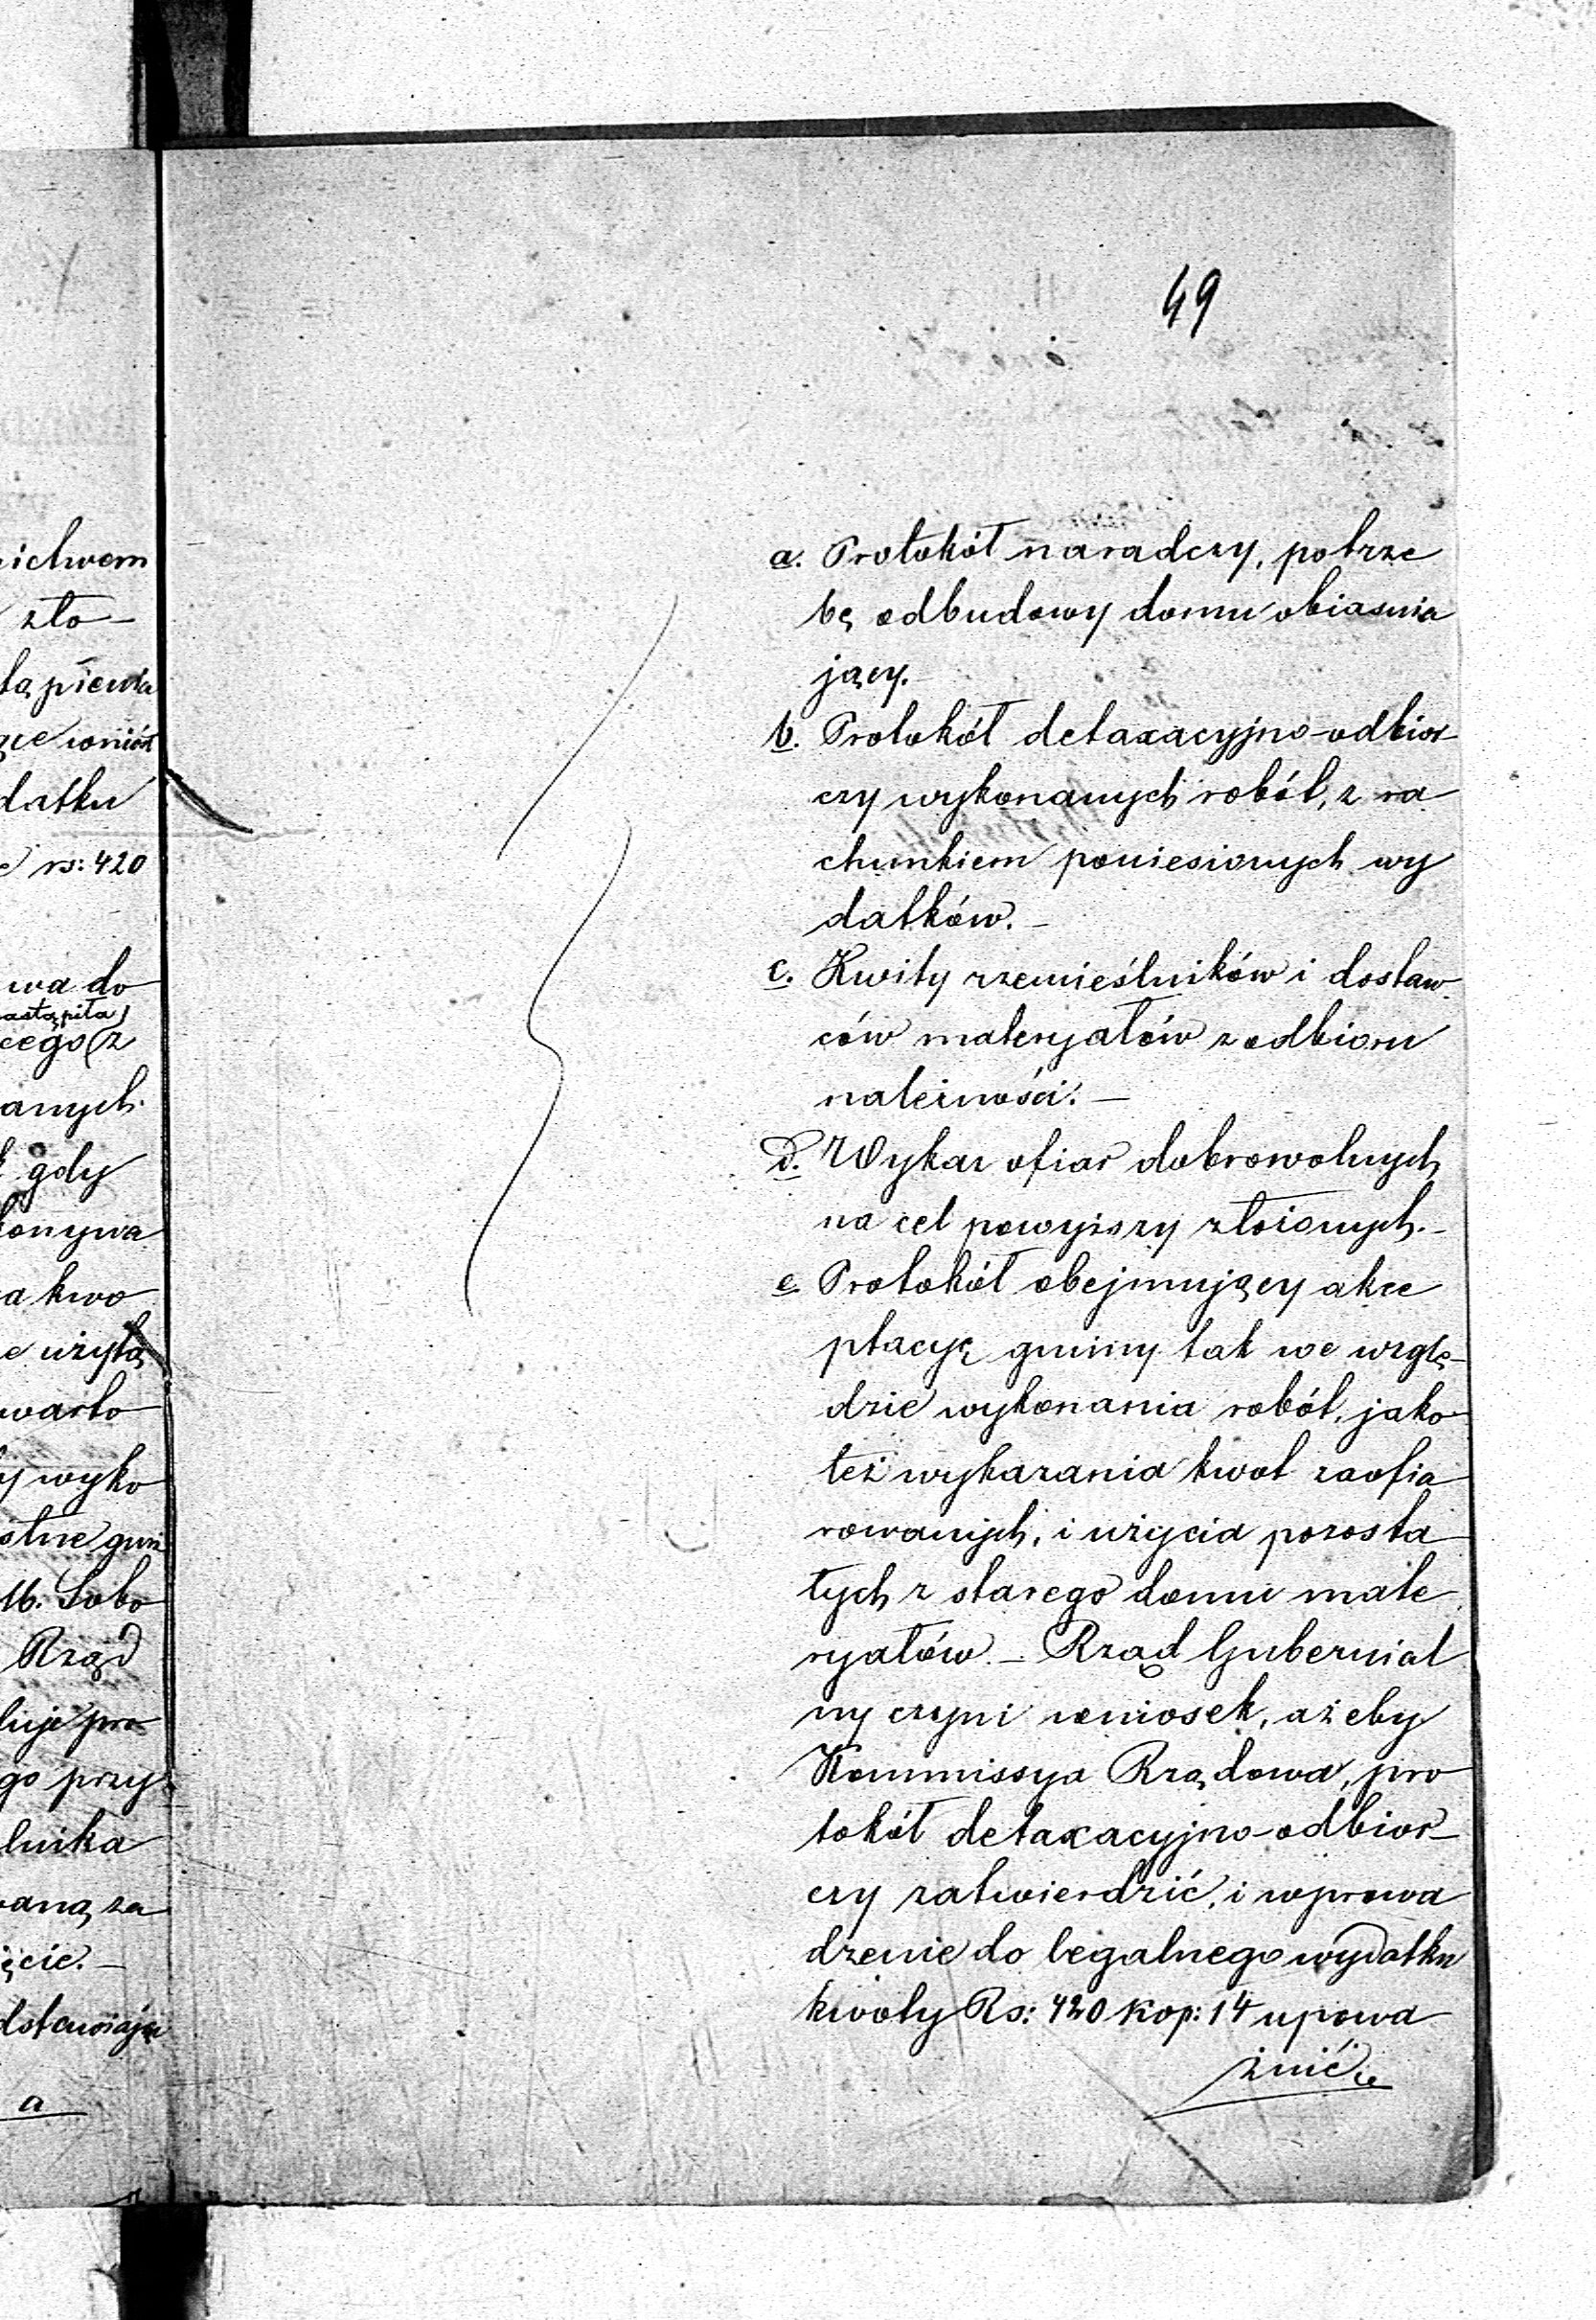 ichwem
zło-
tą piewia
datku
rs: 420
wa do
nastąpiła
cego z
anych.
gdy
konywa
a kwo
e użytą
warto
wyko
otne gmi
16. Lubo
Rząd
luje pro
go przy
lnika
waną za
ęcie.-
dstawiają
a
49
a. Protokół naradczy, potrze
bę odbudowy domu obiasnia
jący.-
b. Protokół detaxacyjno-odbior-
czy wykonanych robót, z ra
chunkiem poniesionych wy
datków.-
c. Kwity rzemieślników i dostaw
ców materyałów z odbioru
należności.-
d. Wykaz ofiar dobrowolnych
na cel powyższy złożonych.-
e. Protokół obejmujący akce
ptacyę gminy tak we wzglę-
dzie wykonania robót, jako
też wykazania kwot zaofia
rowanych, i użycia pozosta
łych z starego domu mate
ryałów.- Rząd Gubernial
ny czyni wniosek, ażeby
Kommissya Rządowa, pro
tokół detaxacyjno-odbior-
czy zatwierdzić, i wprowa
dzenie do legalnego wydatku
kwoty Rs: 420 kop: 14 upowa
żnić